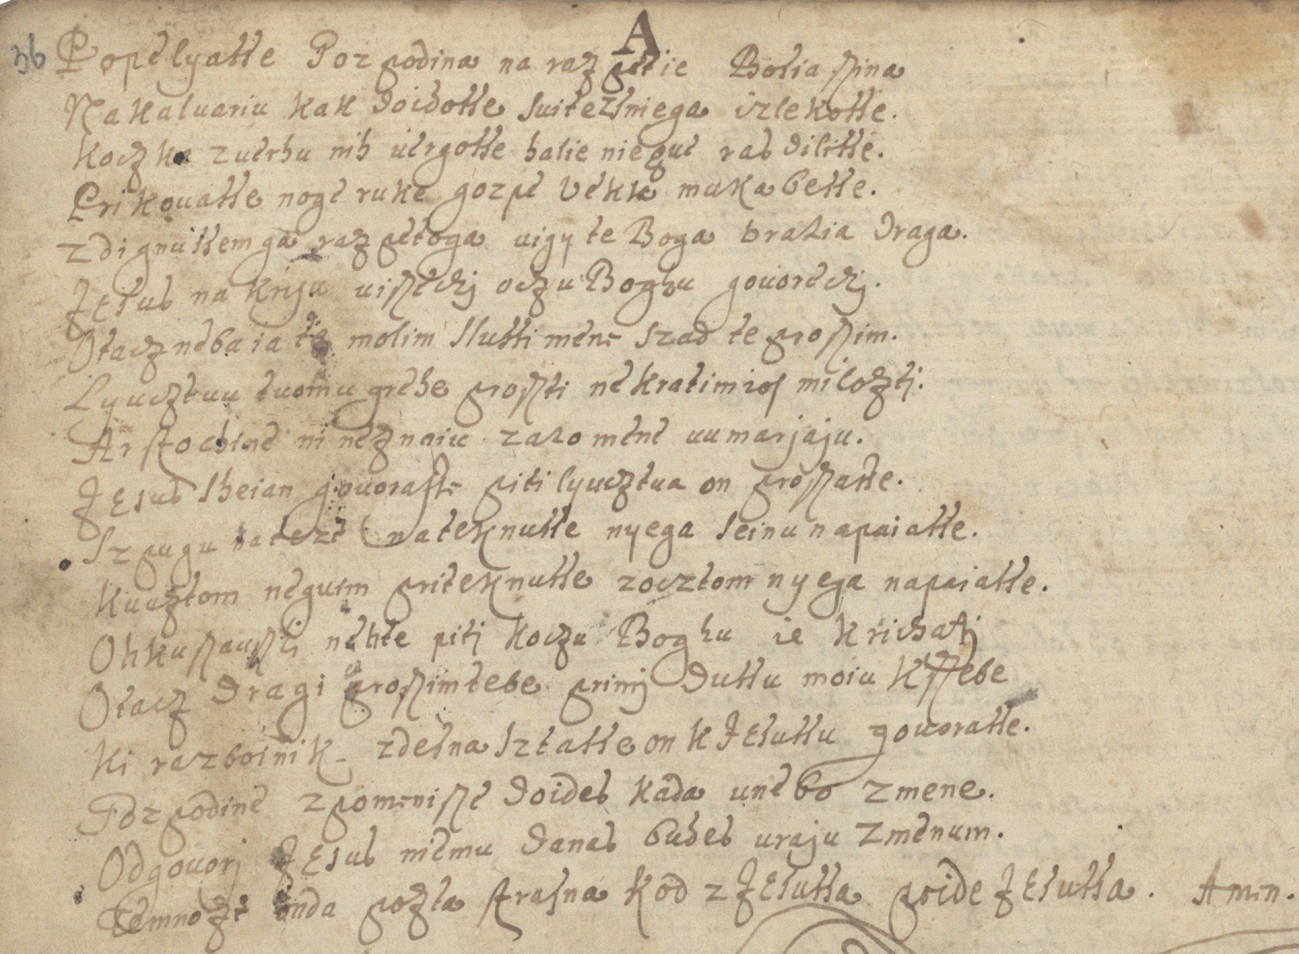 A
36 Popelyasse Gozpodina na razpetie Bosia ssina
Na kaluariu kak doidosse suitezsniega izlekosse.
kocz ka zuerhu nih uergosse halie niegue rasdilisse.
Prikouasse noge ruke gozpe velika muka besse.
zdignussem ga razpetoga uigyte Boga bratia draga.
JEsus na kriju uissechj oczu Boghu gouorechj.
Otacz neba ia te molim slussi mene szad te prossim.
Lyucztuu tuomu grehe prossti ne kratim ioj miloztj.
Ar stochine ni neznaiu zato mene uumarjaju.
JEsus sheian gouorasse piti lyucztua on prossasse.
Szpugu na teknusse nyega seinu napaiasse.
kuaztom neguim priteknusse zocztom nyega napaiasse.
Ohkussaussi nehte pitj koczu Boghu ie krichatj
Otacz dragi prossim tebe primj dussu moiu k ssebe
ki razboinik zdesna sztasse on k JEsussu gouorasse.
Gozpodine zpomenisse doides kada unebo zmene.
Odgouorj JEsus niemu danas budes uraju zmenum.
temnozt onda pozta strasna kod z JEsussa poide JEsussa. Amen.